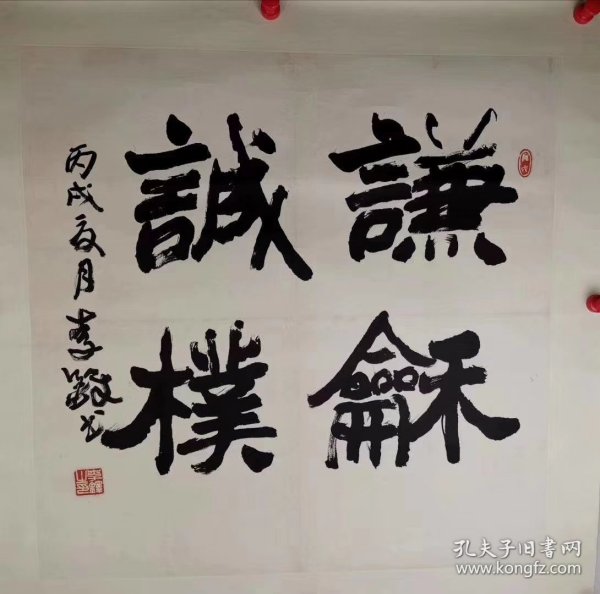 謙龢
誠樸
丙戌夏月李鐸書
孔夫子旧書网
www.kongfz.com